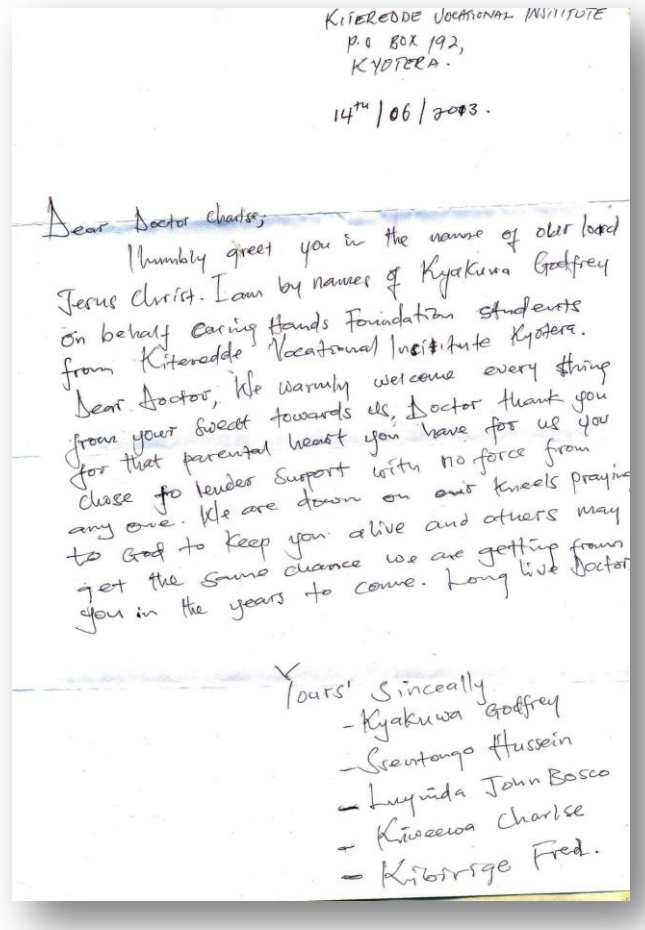 KITEREDDE VOCATIONAL INSTITUTE
P.O BOX 192,
KYOTERA.
14th/06/2013.
Dear Doctor Charlse,
I humbly greet you in the name of our lord
Jesus Christ. I am by names of Kyakuwa Godfrey
on behalf Caring Hands Foundation students
from Kiteredde Vocational Institute Kyotera.
Dear Doctor, We warmly welcome every thing
from your sweat towards us, Doctor thank you
for that parental heart you have for us you
chose to lender Surport with no force from
any one. We are down on our kneels praying
to God to keep you alive and others may
get the same chance we are getting from
you in the years to come. Long live Doctor
Yours' Sinceally
- Kyakuwa Godfrey
- Ssentongo Hussein
- Luyinda John Bosco
- Kiweewa Charlse
- Kibirige Fred.